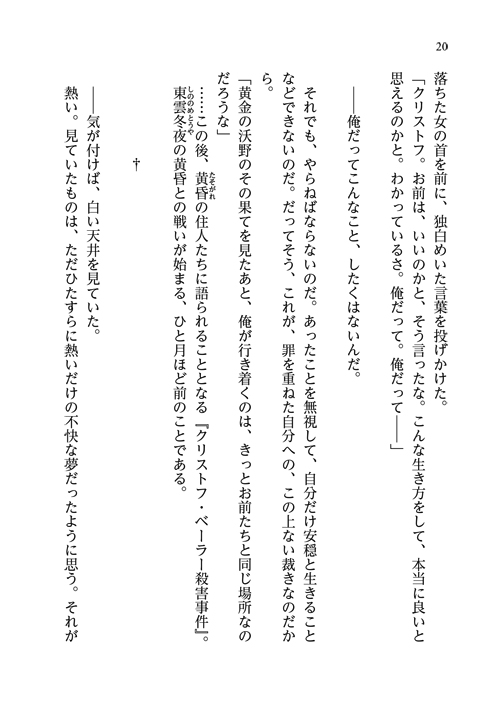 20
落ちた女の首を前に、独白めいた言葉を投げかけた。
「クリストフ。お前は、いいのかと、そう言ったな。こんな生き方をして、本当に良いと
思えるのかと。わかっているさ。俺だって。俺だって――」
――俺だってこんなこと、したくはないんだ。
それでも、やらねばならないのだ。あったことを無視して、自分だけ安穏と生きること
などできないのだ。だってそう、これが、罪を重ねた自分への、この上ない裁きなのだか
ら。
「黄金の沃野のその果てを見たあと、俺が行き着くのは、きっとお前たちと同じ場所なの
だろうな」
……この後、黄昏の住人たちに語られることとなる『クリストフ・ベーラー殺害事件』。
東雲冬夜の黄昏との戦いが始まる、ひと月ほど前のことである。
†
――気が付けば、白い天井を見ていた。
熱い。見ていたものは、ただひたすらに熱いだけの不快な夢だったように思う。それが